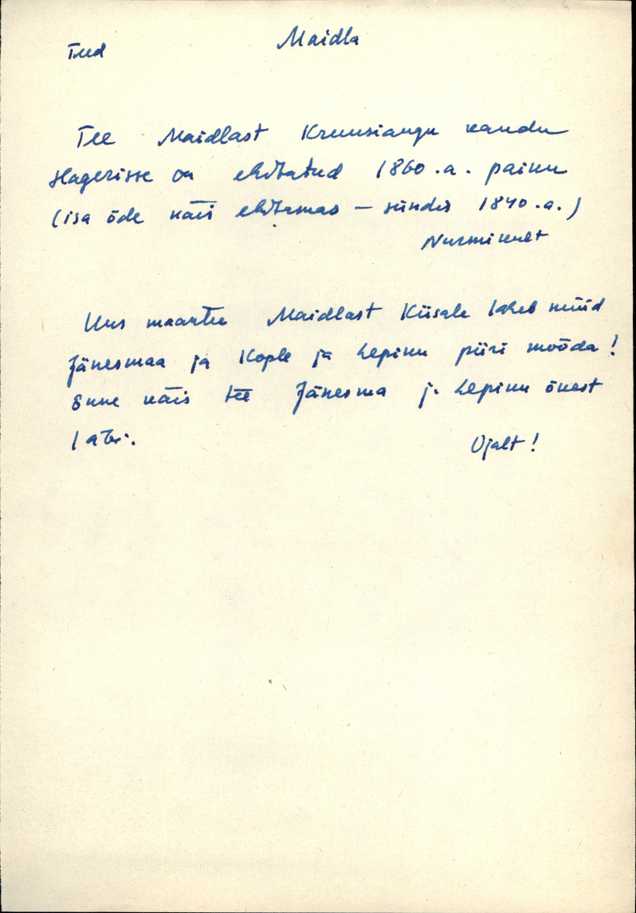 Teed Maidla
Tee Maidlast Kruusiaugu kaudu
Hagerisse on ehitatud 1860.a. paiku
(isa õde käis ehitamas – sündis 1840.a.)
Nurmikult
Uus maantee Maidlast Kiisale läheb nüüd
Jänesmaa ja Kople ja Lepiku piiri mööda!
Enne käis tee Jänesma ja Lepiku õuest
läbi.
Ojalt!